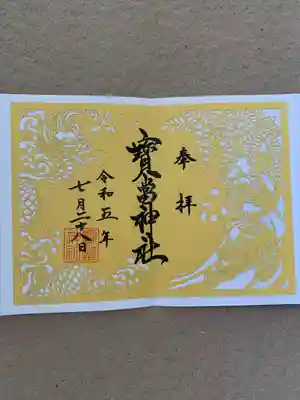 奉拝
寳當神社
令和五年
七月二十八日